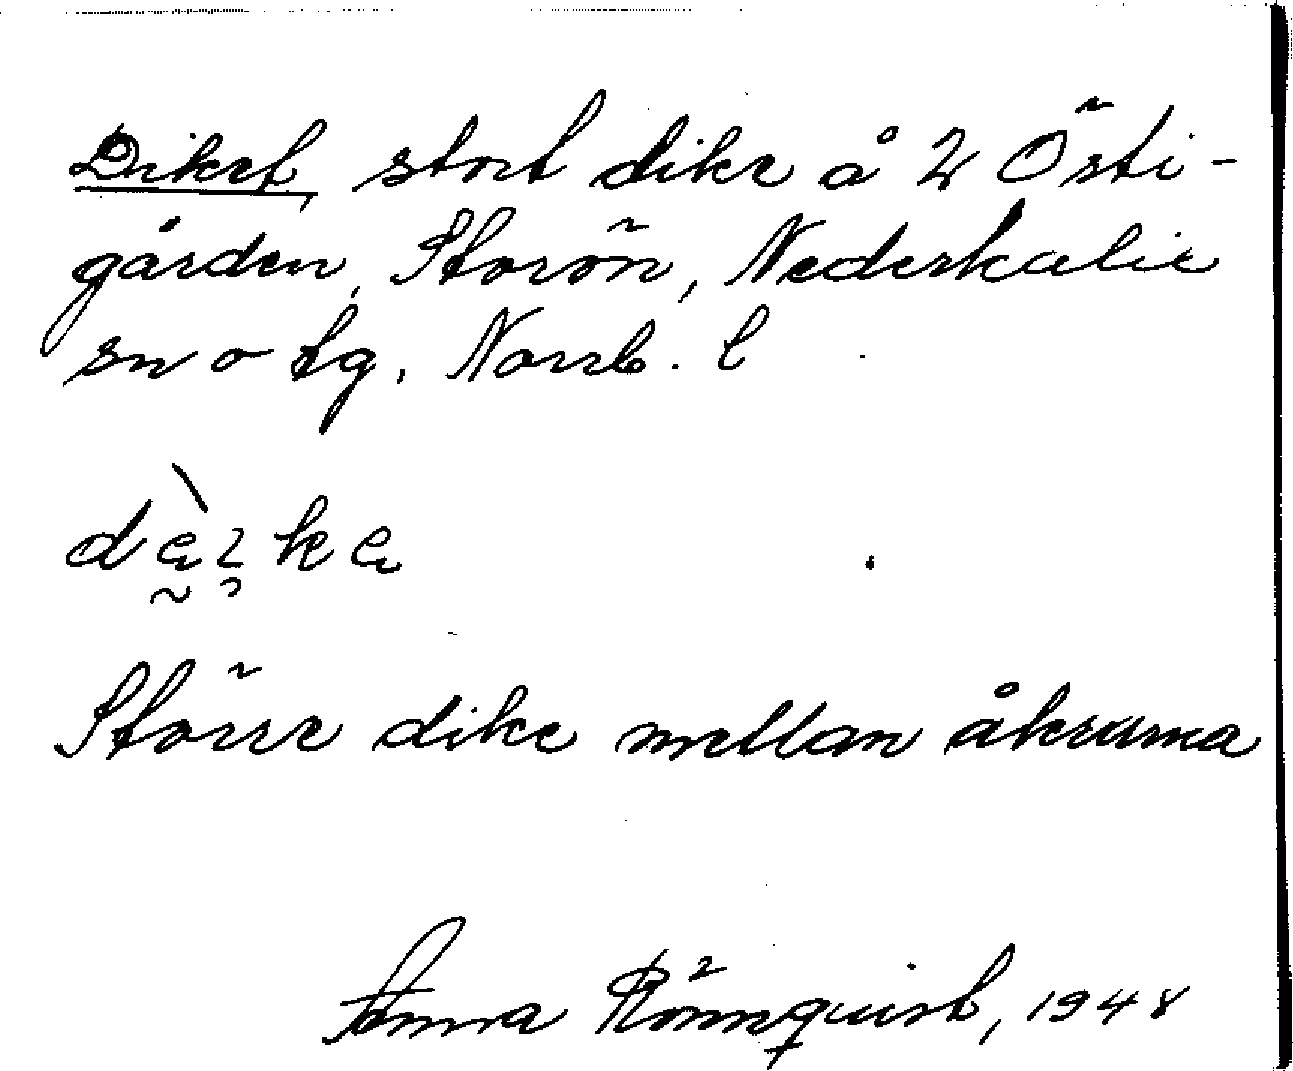 Diket, stort dike å 2 Östi-
gården, Storön, Nederkalix
sn o tg, Norrb. l
Större dike mellan åkrarna
Anna Rönnquist, 1948